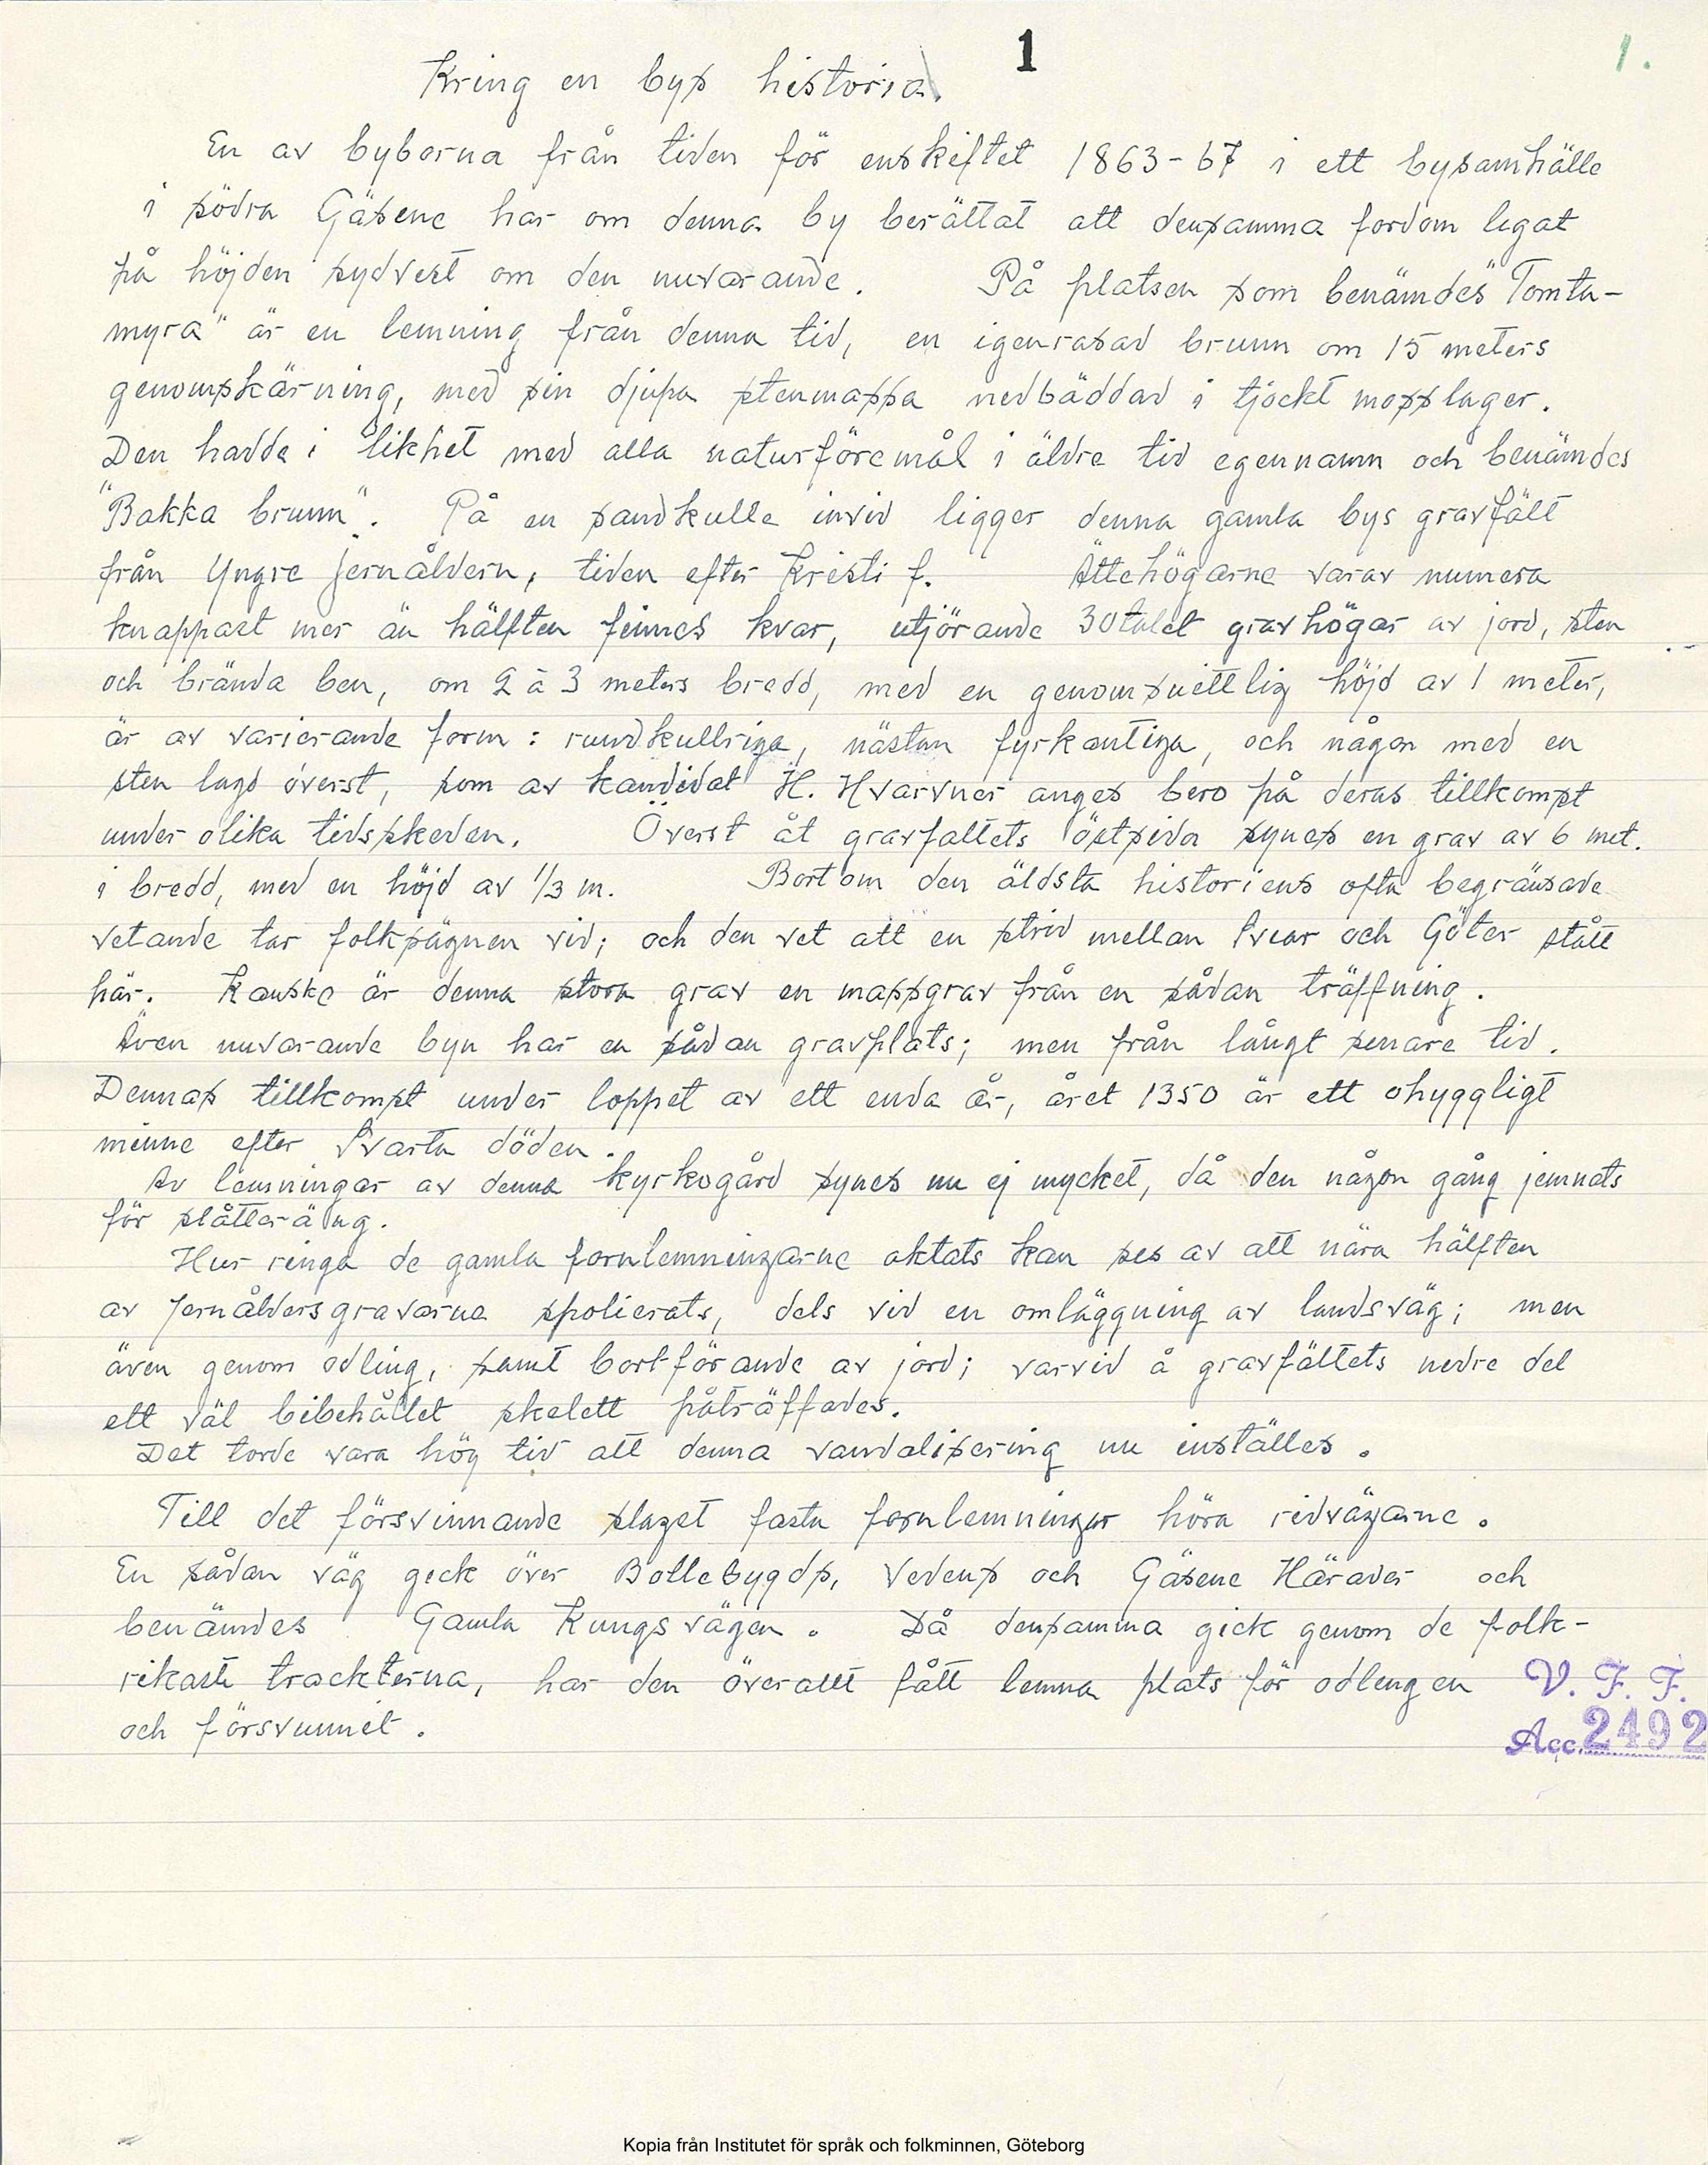 1
1.
Kring en bys historia.
En av byborna från tiden för enskiftet 1863-67 i ett bysamhälle
i södra Gäsene har om denna by berättat att densamma fordom legat
på höjden sydvest om den nuvarande. På platsen som benämdes "Tomta-
myra" är en lemning från denna tid, en igenrasad brunn om 15 meters
genomskärning, med sin djupa stenmassa nedbäddad i tjockt mosslager.
Den hadde i likhet med alla naturföremål i äldre tid egennamn och benämdes
"Bakka brunn". På en sandkulle invid ligger denna gamla bys gravfält
från Yngre Jernåldern, tiden efter Kristi f. Ättehögarne varav numera
knappast mer än hälften finnes kvar, utjörande 30talet gravhögar av jord, sten
och brända ben, om 2 à 3 meters bredd, med en genomsnittlig höjd av 1 meter,
är av varierande form: rundkullriga, nästan fyrkantiga, och någon med en
sten lagd överst, som av kandidat H. Hvarvner anges bero på deras tillkomst
under olika tidskeden. Överst åt gravfältets östsida synes en grav av 6 met.
i bredd, med en höjd av 1/3 m. Bortom den äldsta historiens ofta begränsade
vetande tar folksägnen vid; och den vet att en strid mellan Svear och Göter stått
här. Kanske är denna stora grav en massgrav från en sådan träffning.
Även nuvarande byn har en sådan gravplats; men från långt senare tid.
Dennas tillkomst under loppet av ett enda år, året 1350 är ett ohyggligt
minne efter Svarta döden.
Av lemningar av denna kyrkogård synes nu ej mycket, då den någon gång jemnats
för slåtteräng.
Hur ringa de gamla fornlemningarne aktats kan ses av att nära hälften
av Jernåldersgravarne spolierats, dels vid en omläggning av landsväg; men
även genom odling, samt bortförande av jord; varvid å gravfältets nedre del
ett väl bibehållet skelett påträffades.
Det torde vara hög tid att denna vandalisering nu inställes.
Till det försvinnande slaget fasta fornlemningar höra ridvägarne.
En sådan väg geck över Bollebygds, Vedens och Gäsene Härader och
benämdes Gamla Kungsvägen. Då densamma gick genom de folk-
rikaste trackterna, har den överallt fått lemna plats för odlingen
och försvunnit.
V. F. F.
Acc. 2492
Kopia från Institutet för språk och folkminnen, Göteborg